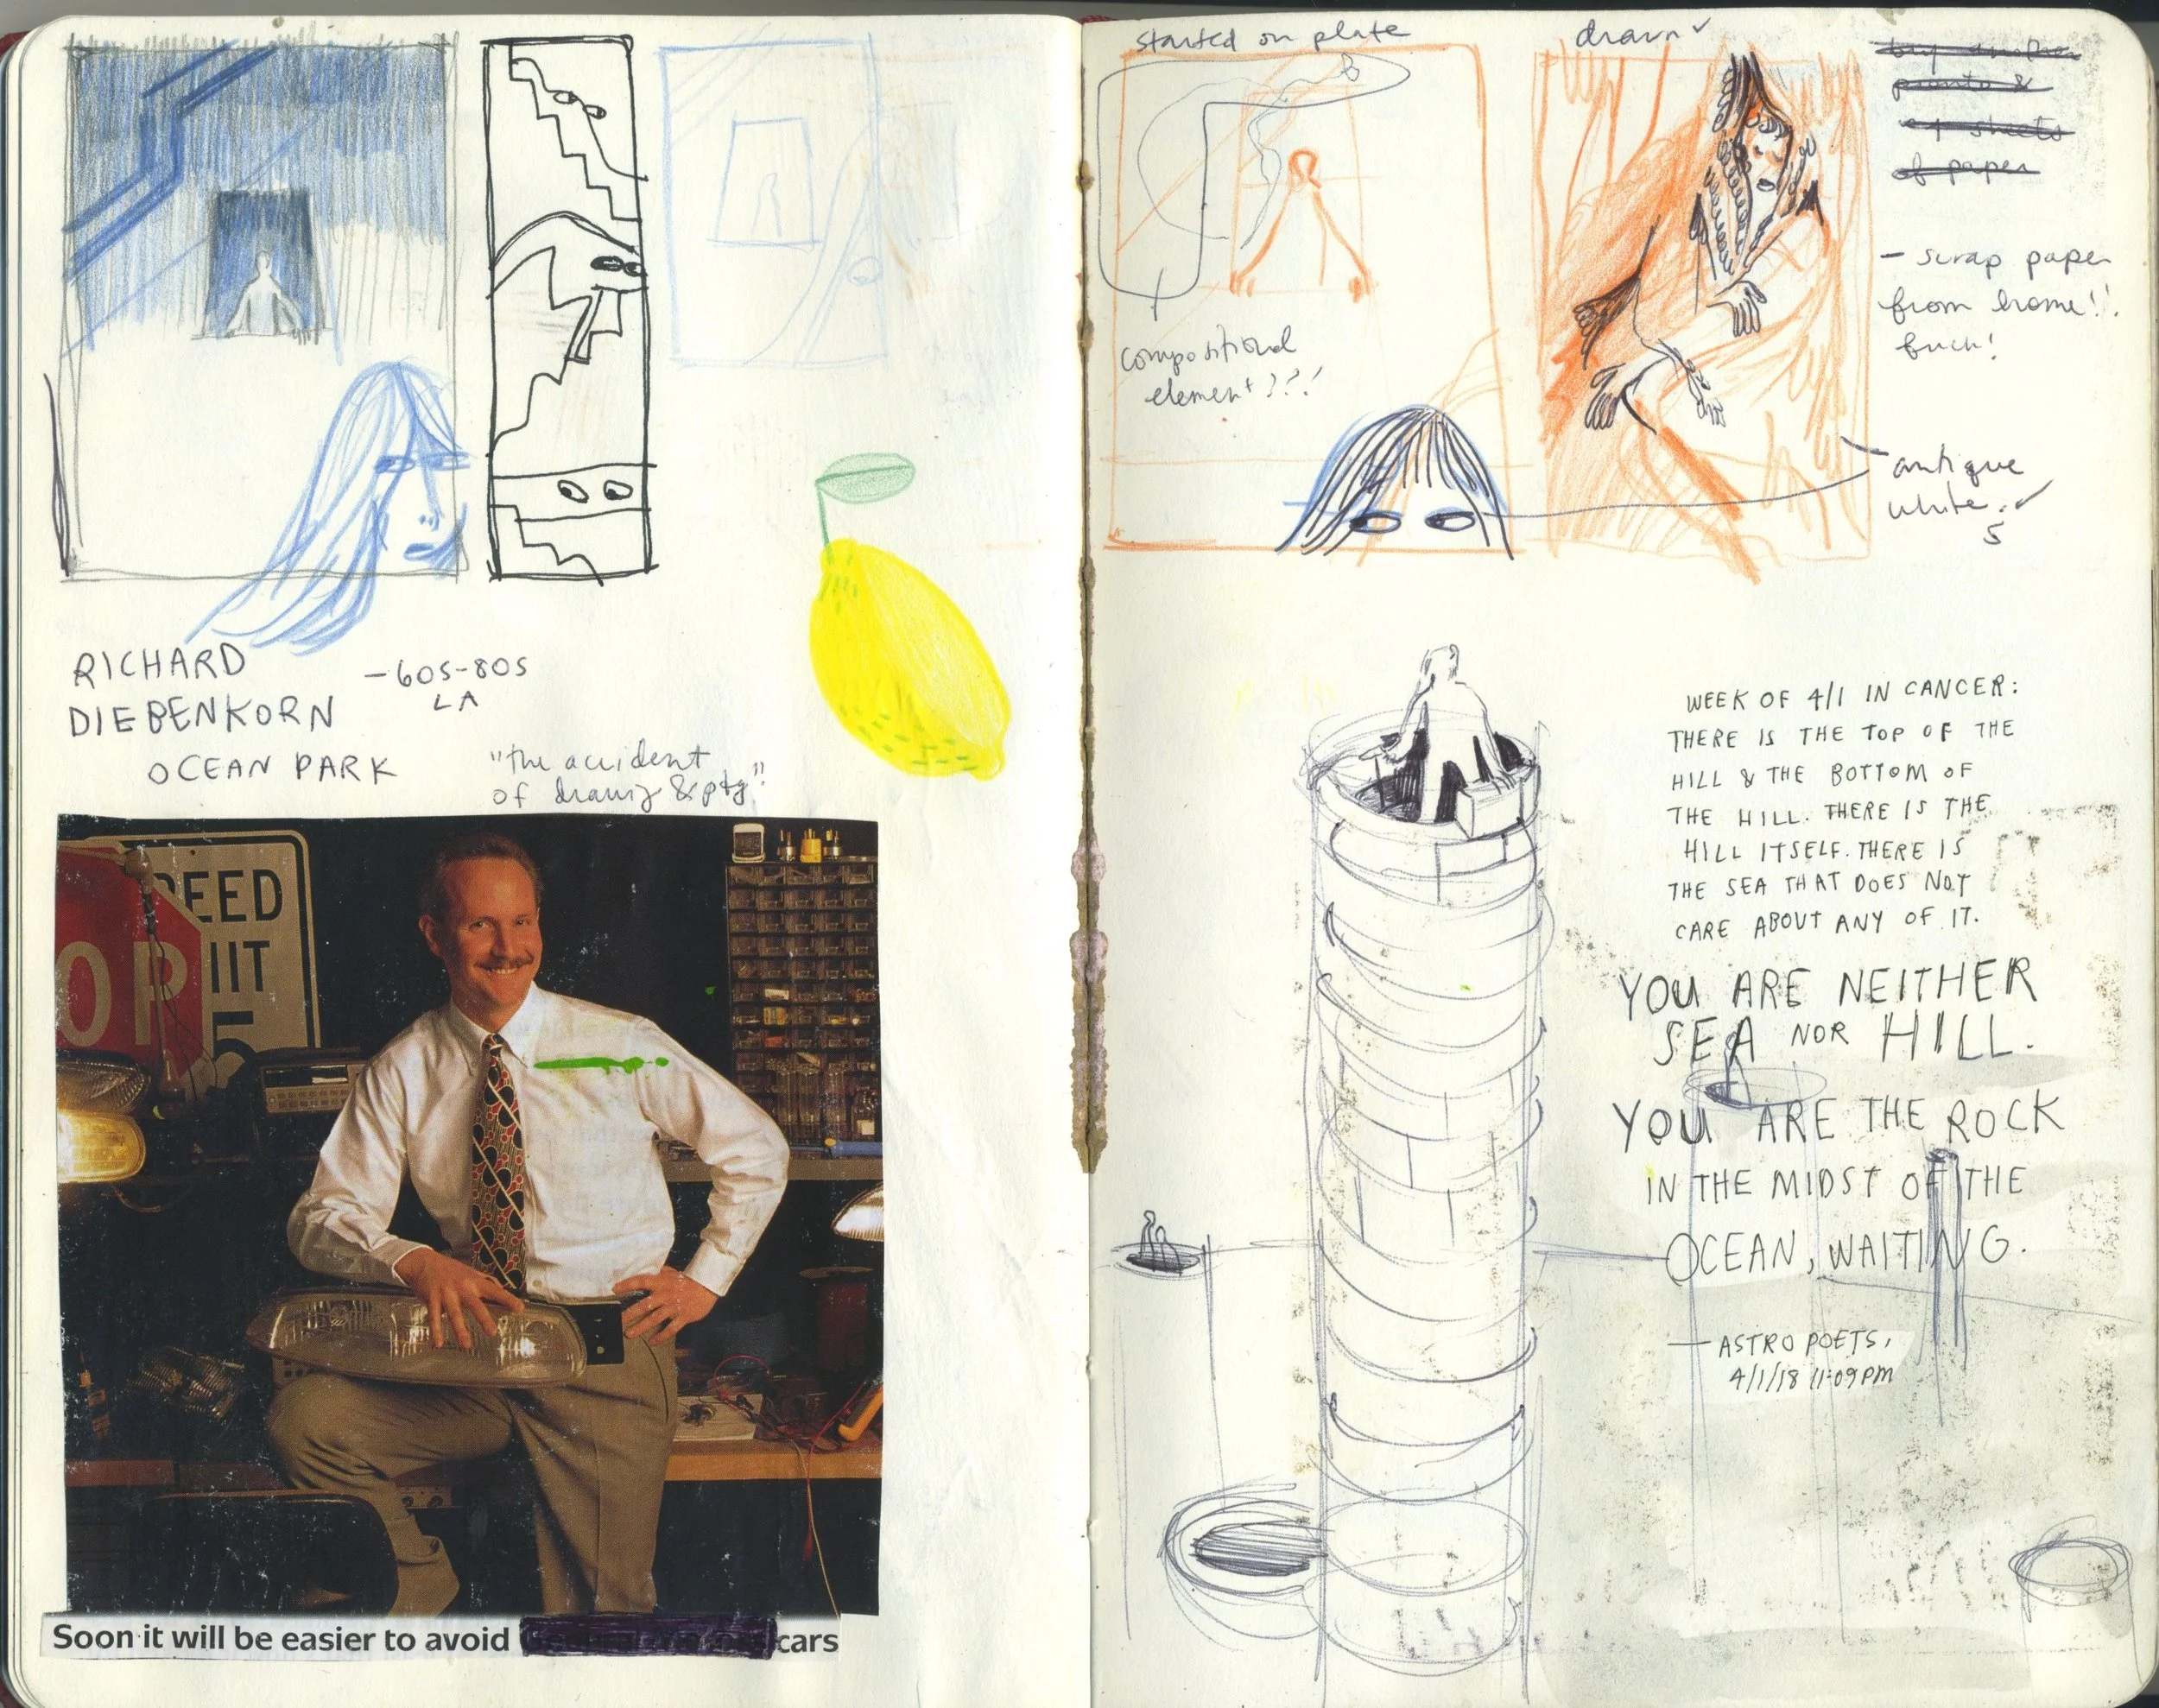 RICHARD
DIEBENKORN
OCEAN PARK
-60S-80S
LA
"the accident
of drawing & ptg"
EED
IIT
5
OP
Soon it will be easier to avoid cars
started on plate
compositional
element???!
drawn ✓
prints &
4 sheets
of paper
- scrap paper
from home!!
antique
white. ✓
5
WEEK OF 4/1 IN CANCER:
THERE IS THE TOP OF THE
HILL & THE BOTTOM OF
THE HILL. THERE IS THE
HILL ITSELF. THERE IS
THE SEA THAT DOES NOT
CARE ABOUT ANY OF IT.
YOU ARE NEITHER
SEA NOR HILL.
YOU ARE THE ROCK
IN THE MIDST OF THE
OCEAN, WAITING.
— ASTRO POETS,
4/1/18 11:09PM